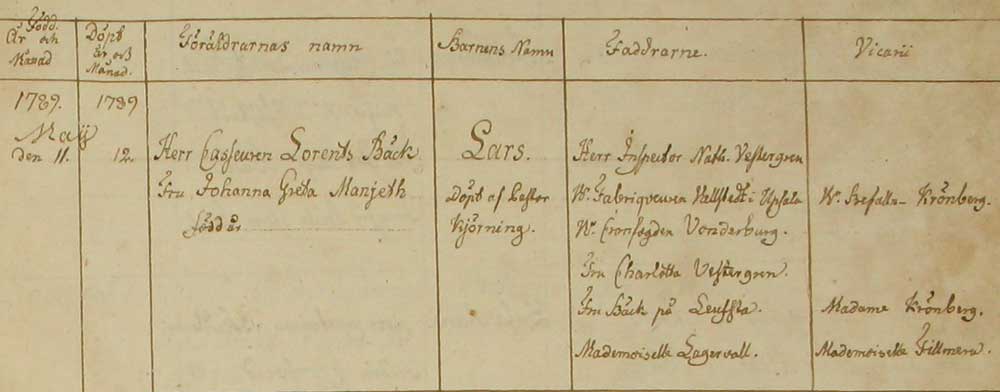 Född År och Månad
Döpt år och Månad.
Föräldrarnas namn
Barnens Namn
Faddrarne.
Vicarii
1789. Maij den 11.
1789 12.
Herr Casseuren Lorents Bäck
Fru Johanna Greta Manjeth
född år
Lars.
Döpt af Pastor
Kjörning.
Herr Inspector Nath. Vestergren
Hr. Fabriqveuren Vallstedt i Upsala
Hr. Cronfogden Vonderburg.
Fru Charlotta Vestergren.
Fru Bäck på Leufsta.
Mademoiselle Lagervall.
Hr. Krönberg.
Madame Krönberg.
Mademoiselle Fillmera.